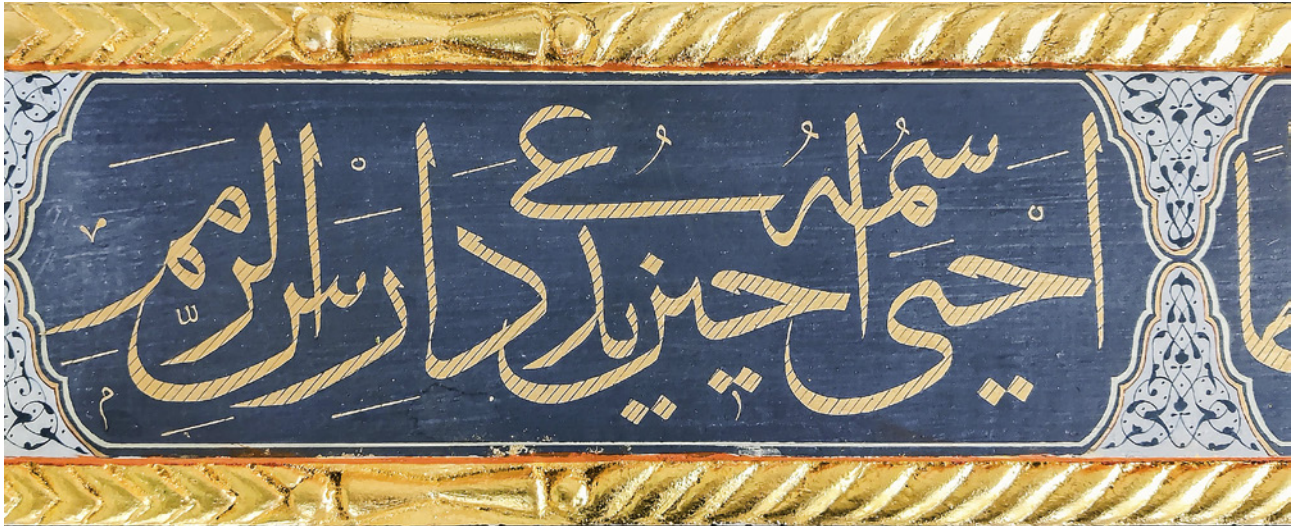 احيى اسمه حين يدعى دارس الرمم